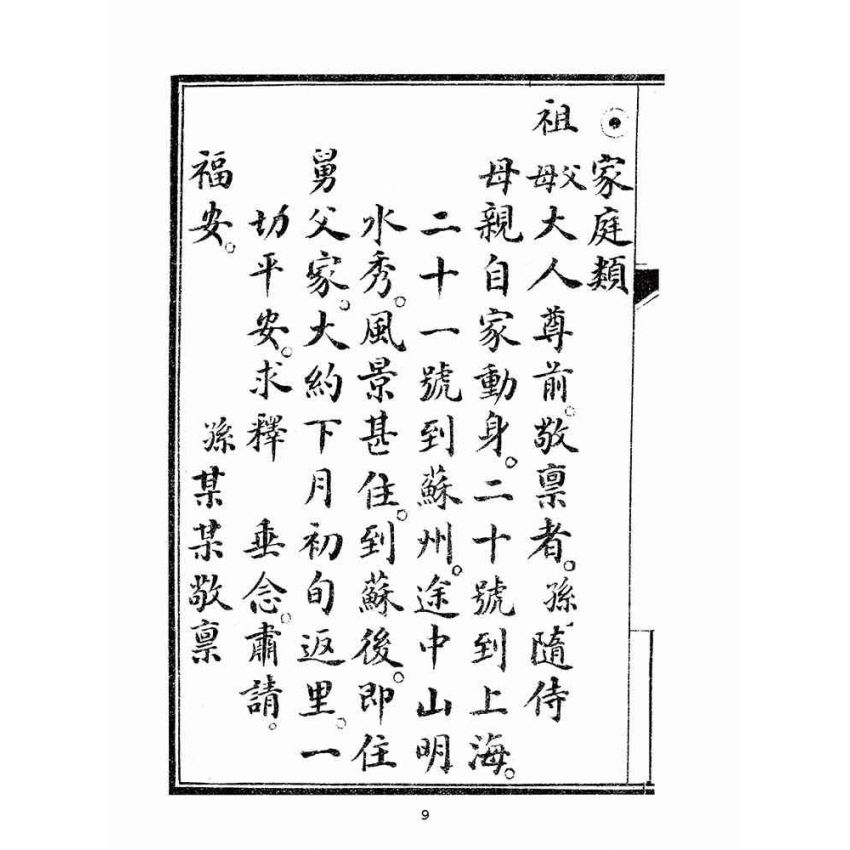 家庭類
祖父母大人尊前。敬禀者。孫隨侍
母親自家動身。二十號到上海。
二十一號到蘇州。途中山明
水秀。風景甚住。到蘇後。即住
舅父家。大約下月初旬返里。一
切平安。求釋 垂念。肅請。
福安。 孫某某敬禀
9